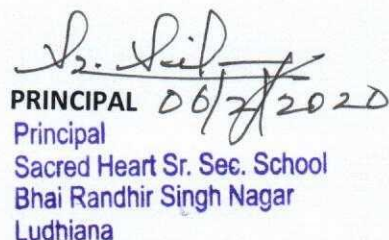 Sr.
PRINCIPAL 06/2/2020
Principal
Sacred Heart Sr. Sec. School
Bhai Randhir Singh Nagar
Ludhiana